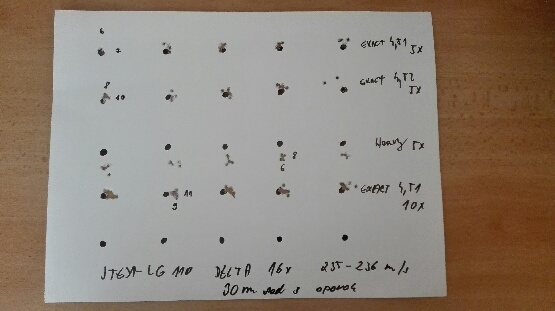 6
EXACT 4,51
5x
8
10
EXACT 4,52
5x
5x
8
6
EXPERT 4,51
10x
11
9
STEYR LG 110 DELTA 16x 235-236 m/s
30m sed s oporou